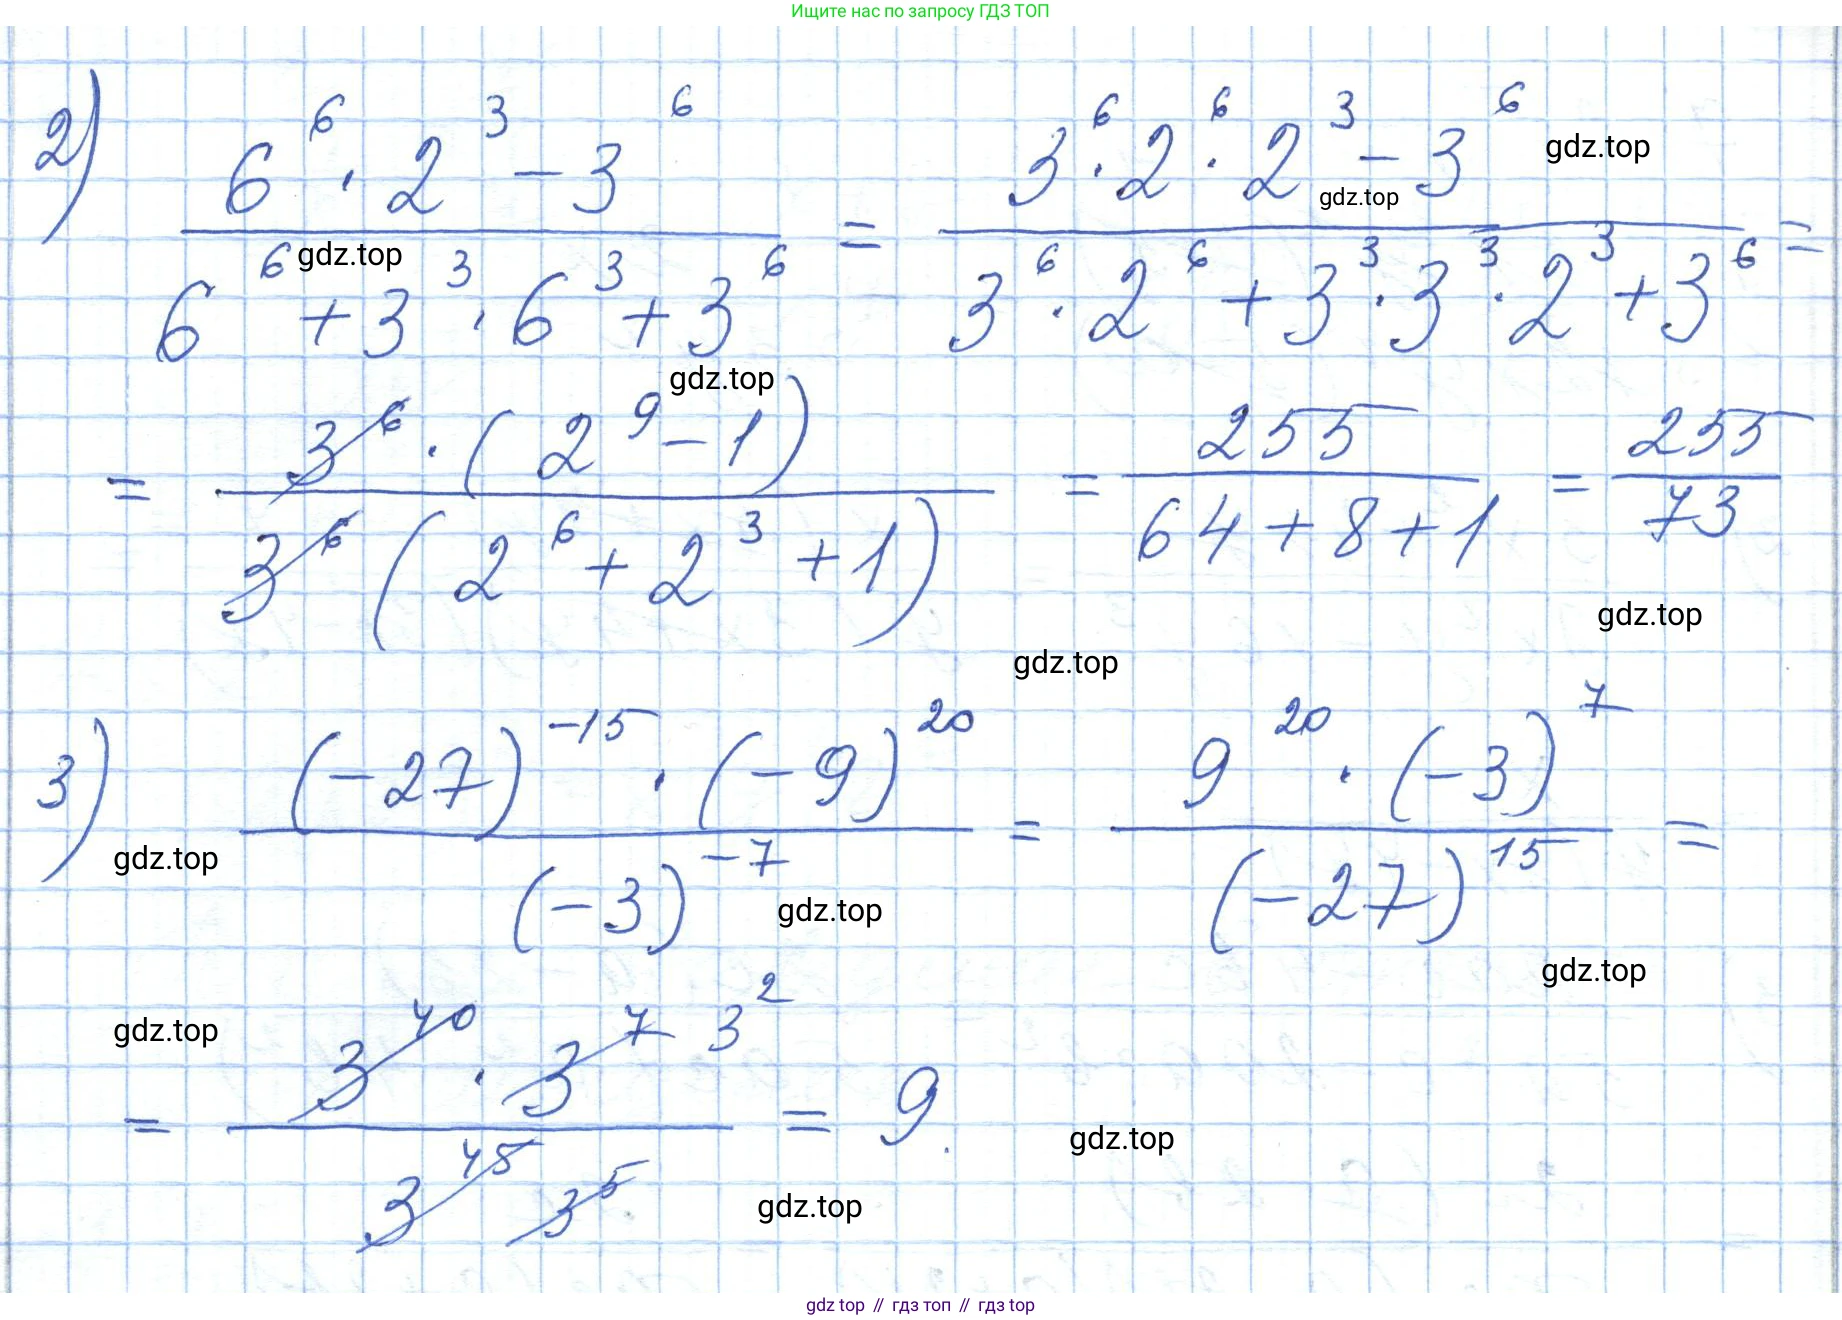 Ищите нас по запросу ГДЗ ТОП
2) (6^6 · 2^3 − 3^6) / (6^6 + 3^3 · 6^3 + 3^6) = (3^6 · 2^6 · 2^3 − 3^6) / (3^6 · 2^6 + 3^3 · 3^3 · 2^3 + 3^6) =
= (3^6 · (2^9 − 1)) / (3^6 (2^6 + 2^3 + 1)) = 255 / (64 + 8 + 1) = 255 / 73
3) ((−27)^−15 · (−9)^20) / (−3)^−7 = (9^20 · (−3)^7) / (−27)^15 =
= (3^40 · 3^7 3^2) / (3^45 3^5) = 9.
gdz.top
gdz.top
gdz.top
gdz.top
gdz.top
gdz.top
gdz.top
gdz.top
gdz.top
gdz.top
gdz.top
gdz.top
gdz top // гдз топ // гдз top